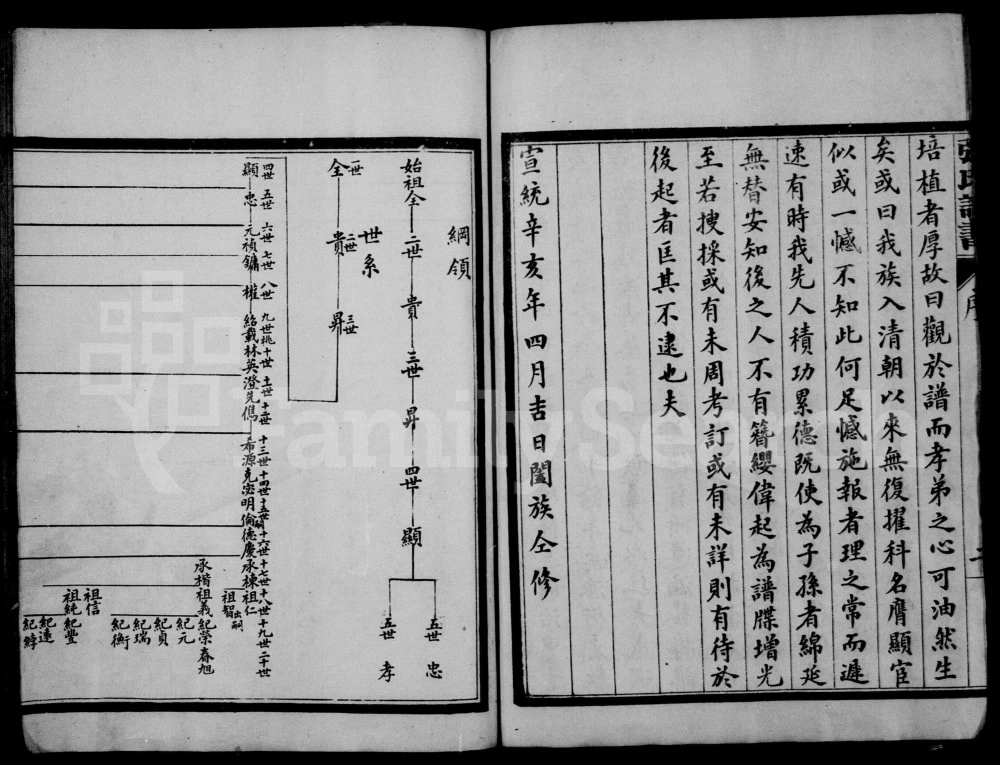 張氏譜書
序
培植者厚故曰觀於譜而孝弟之心可油然生
矣或曰我族入清朝以來無復擢科名膺顯宦
似或一憾不知此何足憾施報者理之常而遲
速有時我先人積功累德既使為子孫者綿延
無替安知後之人不有簪纓偉起為譜牒增光
至若搜採或有未周考訂或有未詳則有待於
後起者匡其不逮也夫
宣統辛亥年四月吉日闔族仝修
綱領
始祖全 二世 貴 三世 昇 四世 顯
五世 忠
五世 孝
世系
一世 二世 三世
全 貴 昇
四世 五世 六世 七世 八世 九世 十世 十一世 十二世 十三世 十四世 十五世 十六世 十七世 十八世 十九世 二十世
顯 忠 元禎 鏞 權 紹載 林英 澄 先儁 希源 克宓 明倫 德慶 承棟 祖仁
祖智出嗣
承楷 祖義 紀榮 春旭
紀元
紀貞
紀瑞
紀衡
祖信
祖純 紀豐
紀遠
FamilySearch